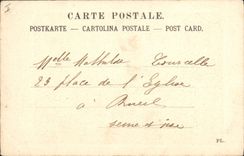 CARTE POSTALE.
POSTKARTE — CARTOLINA POSTALE — POST CARD.
Melle Mathilde Tourcelle
23 place de l'Eglise
à Rueil
Seine & Oise